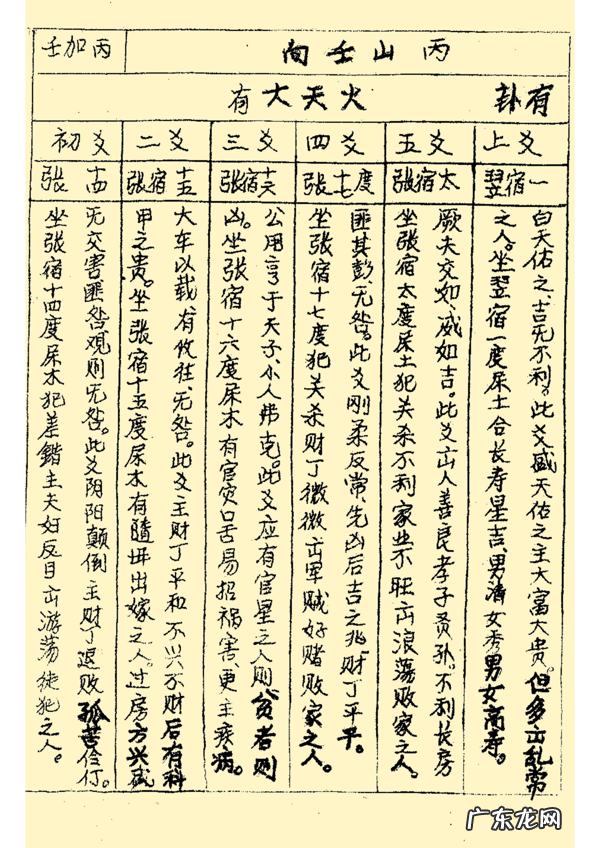 丙山壬向
丙加壬
有卦
火天大有
上爻
五爻
四爻
三爻
二爻
初爻
翌宿一
张宿太
张十七度
张宿十六
张宿十五
张十四
白天佑之、吉无不利。此爻盛天佑之主大富大贵。但多出乱常
之人。坐翌宿一度屎土合长寿星吉、男清女秀男女高寿。
厥夫交如、威如吉。此爻出人善良孝子贤孙。不利长房
坐张宿太度屎土犯关杀不利家业不旺出浪荡败家之人。
匪其彭、无咎。此爻刚柔反常、先凶后吉之兆财丁平平。
坐张宿十七度犯关杀财丁微微出军贼好赌败家之人。
公用亨于天子、小人弗克。此爻应有官星之人则贫者则
凶。坐张宿十六度屎木有官灾口舌易招祸害更主疾病。
大车以载、有攸往、无咎。此爻主财丁平和不兴不财后有科
甲之贵。坐张宿十五度屎木有随母出嫁之人。过房方兴盛
无交害匪咎艰则无咎。此爻阴阳颠倒主财丁退败孤苦伶仃。
坐张宿十四度屎木犯差錯主夫妇反目出游荡徒犯之人。
广东龙网